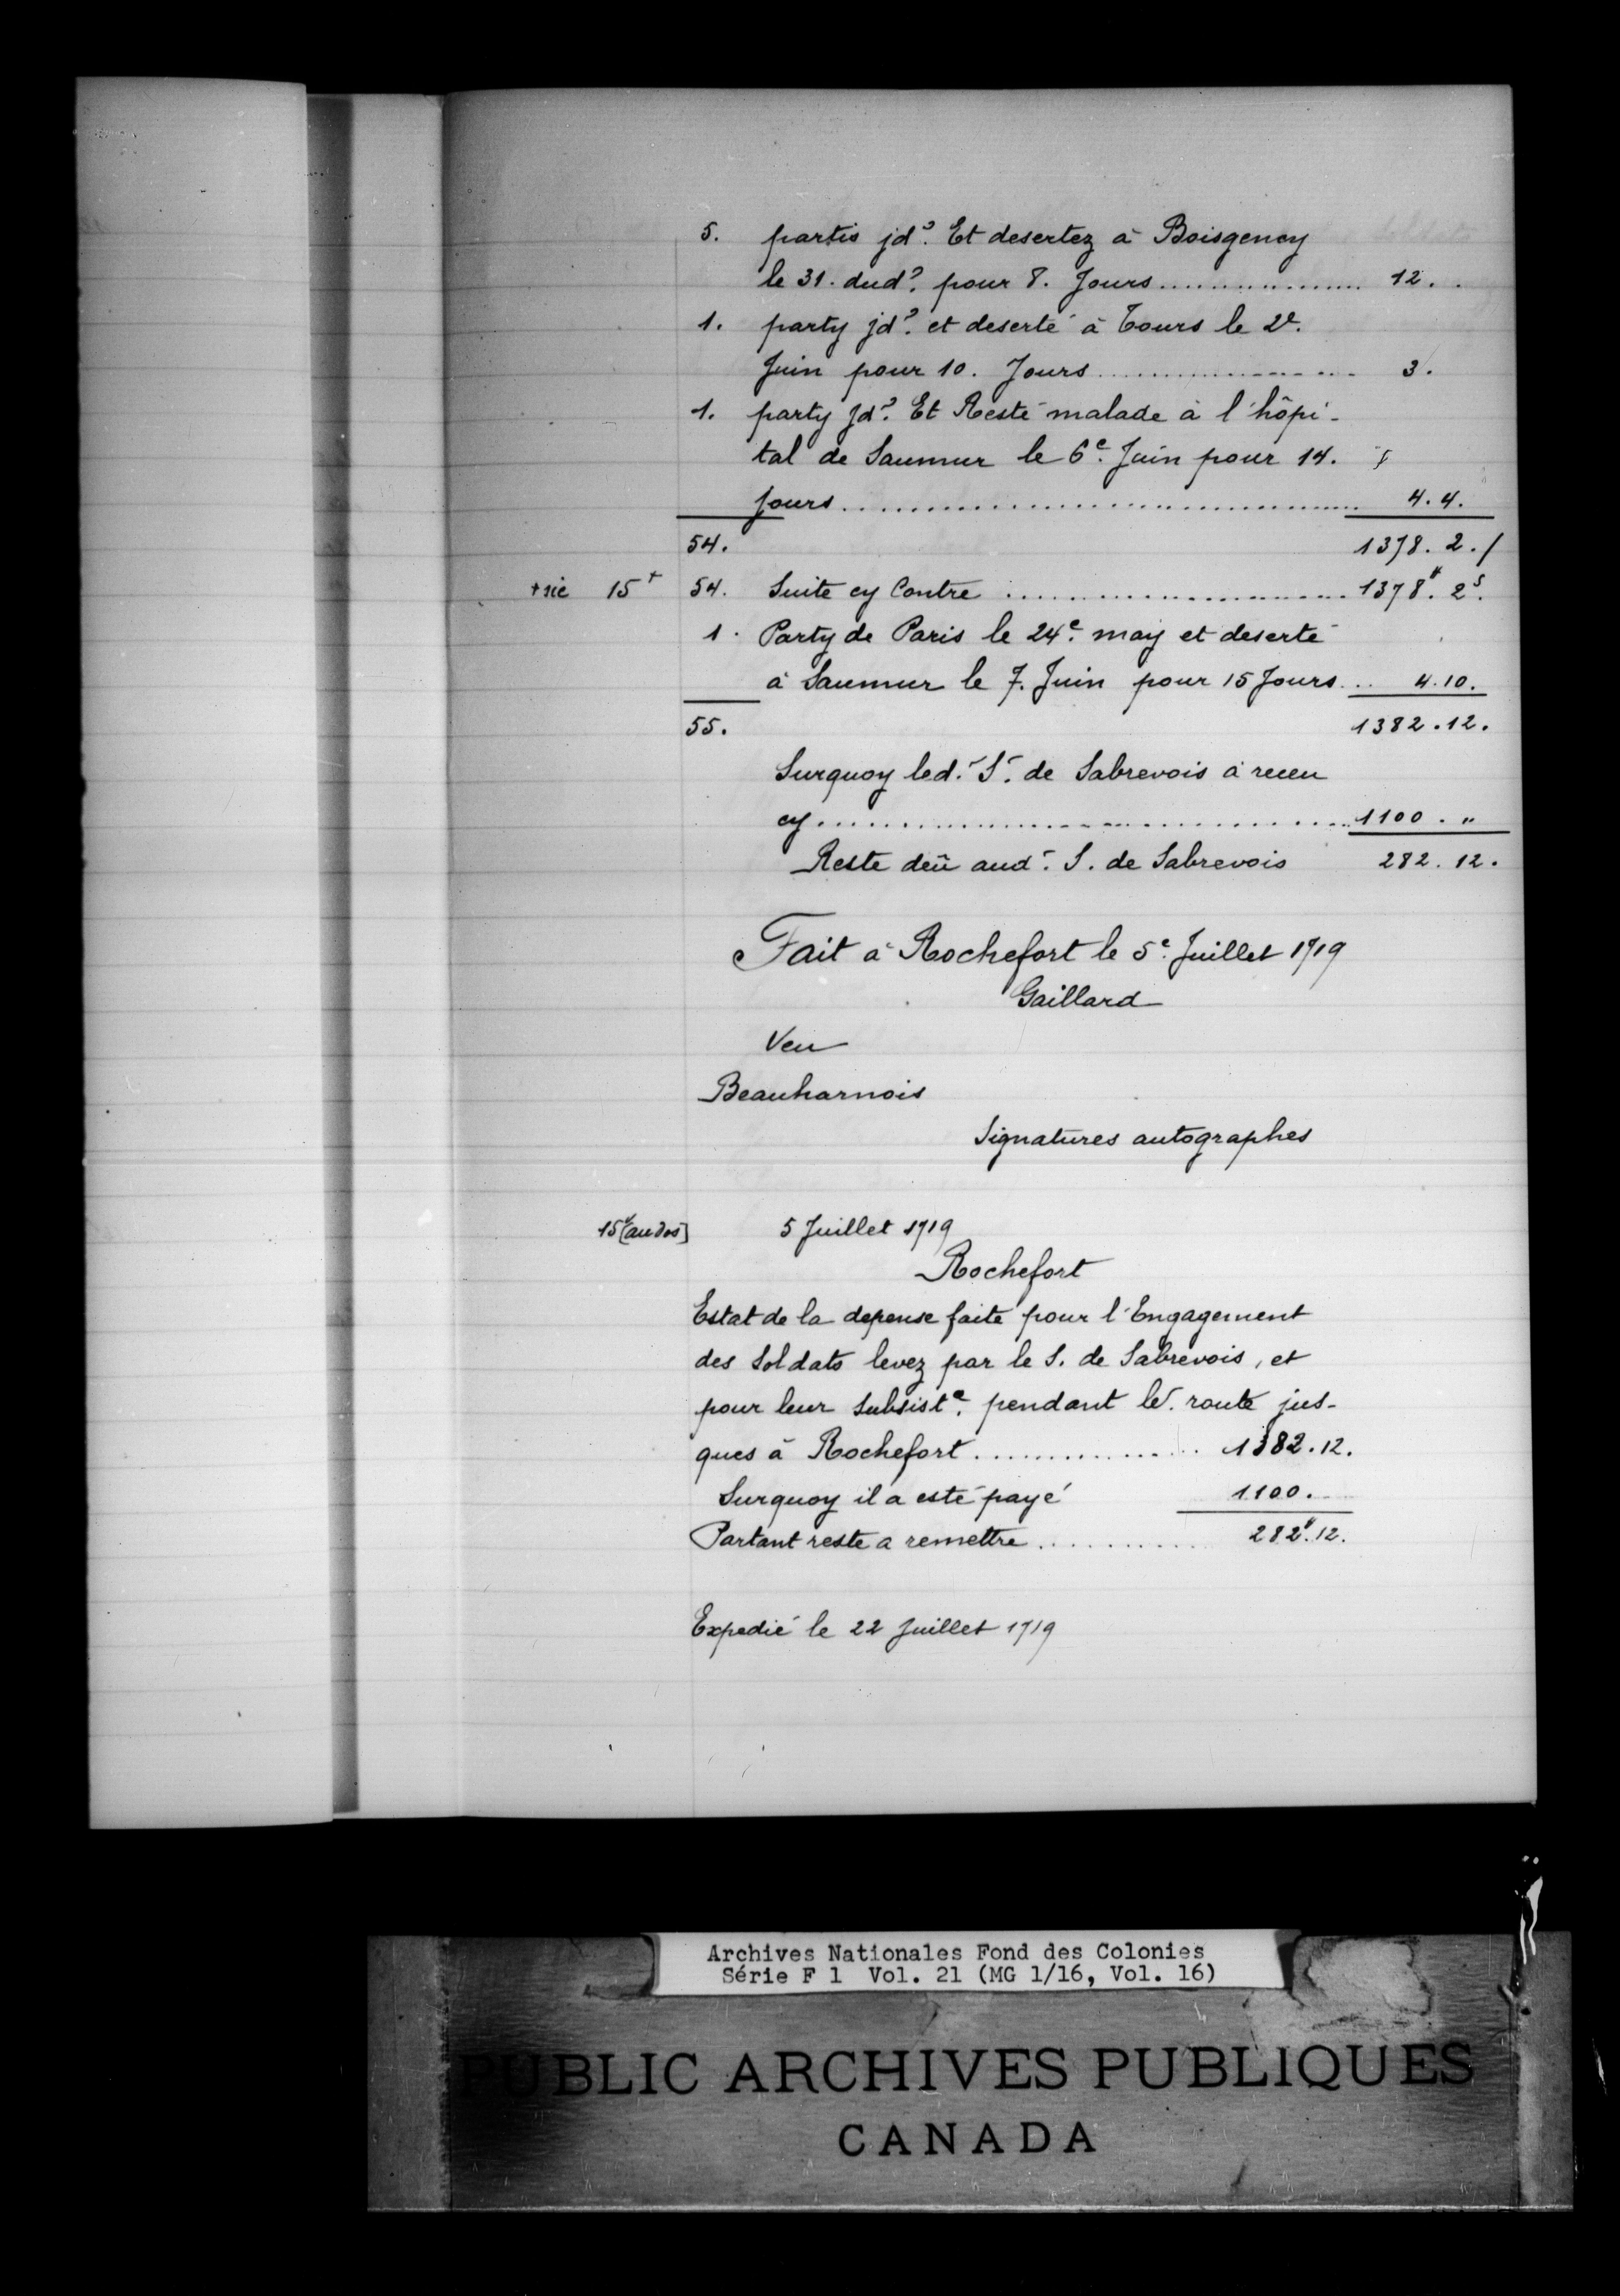 5. partis jd? Et desertez à Boisgency
le 31. dud? pour 8. Jours .................. 12.
1. party jd? et deserté à Tours le 2e.
Juin pour 10. Jours .................. 3.
1. party Jd? Et Resté malade à l'hôpi-
tal de Saumur le 6e. Juin pour 14.
Jours .................. 4.4.
54. 1378. 2./
+sic 15+ 54. Suite cy Contre .................. 1378#. 2s.
1. Party de Paris le 24e. may et deserté
à Saumur le 7. Juin pour 15 Jours... 4.10.
55. 1382.12.
Surquoy led. S. de Sabrevois à receu
cy .................. 1100. "
Reste deû aud. S. de Sabrevois 282. 12.
Fait à Rochefort le 5e. Juillet 1719
Gaillard
Veu
Beauharnois
Signatures autographes
15v[au dos] 5 Juillet 1719
Rochefort
Estat de la depense faite pour l'Engagement
des Soldats levez par le S. de Sabrevois, et
pour leur subsiste. pendant le. route jus-
ques à Rochefort .................. 1382.12.
Surquoy il a esté payé 1100.
Partant reste a remettre ............ 282#.12.
Expedié le 22 Juillet 1719
Archives Nationales Fond des Colonies
Série F 1 Vol. 21 (MG 1/16, Vol. 16)
PUBLIC ARCHIVES PUBLIQUES
CANADA